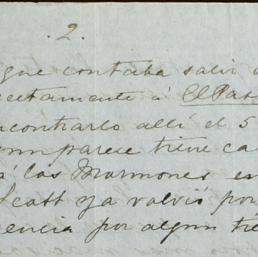 2.
que contaba salir
ectamente á El Pas
ncontrarlo allí el 5
parece tiene ca
á los Mormones en
Scott ya volvió por
encia por algun tie